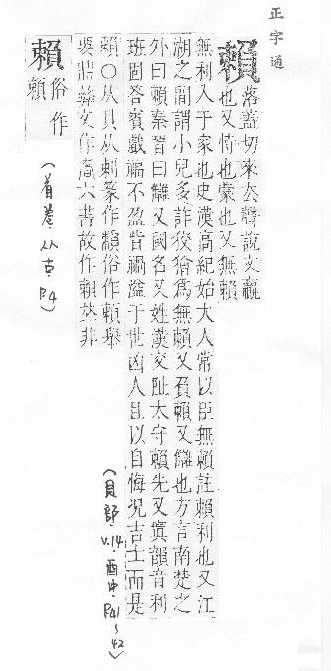 正字通
賴
落蓋切來去聲說文贏
也又恃也蒙也又無賴
無利入于家也史漢高紀始大人常以臣無賴註賴利也又江
湖之間謂小兒多詐狡猾為無賴又賴讎也方言南楚之
外曰賴秦晉曰讎又國名又姓漢交趾太守賴先又寘韻音利
班固答賓戲禍不盈眥禍溢于世凶人且以自悔況吉士而是
賴〇从貝从剌篆作賴俗作頼舉
要將彝文作
六書故作
並非
賴
俗作
頼
(首卷从古.P4)
(貝部.v.14.酉中.P41~42)